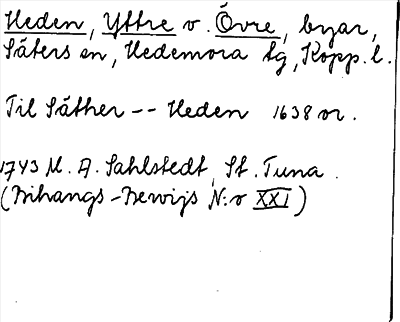 Heden, Yttre o. Övre, byar,
Säters sn, Hedemora tg, Kopp. l.
Til Säther -- Heden 1638 or.
1743 M. A. Sahlstedt, St. Tuna.
(Bihangs-Bewijs N:o XXI)